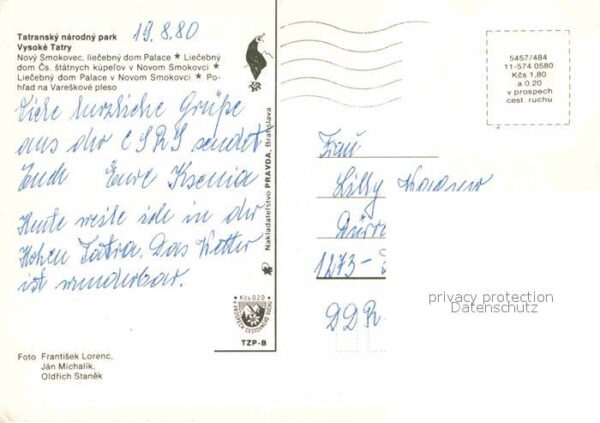 Tatranský národný park
Vysoké Tatry
Nový Smokovec, liečebný dom Palace ★ Liečebný
dom Čs. štátnych kúpeľov v Novom Smokovci ★
Liečebný dom Palace v Novom Smokovci ★ Po-
hľad na Vareškové pleso
19.8.80
Viele herzliche Grüße
aus der CSRS sendet
Euch Eure Ksenia
Heute weile ich in der
Hohen Tatra. Das Wetter
ist wunderbar.
Foto František Lorenc,
Ján Michalík,
Oldřich Staněk
Nakladateľstvo PRAVDA, Bratislava
Kčs 0.20
TZP-B
5457/484
11-574 0580
Kčs 1,80
a 0.20
v prospech
cest. ruchu
Frau
Lilly
1273-
DDR
privacy protection
Datenschutz